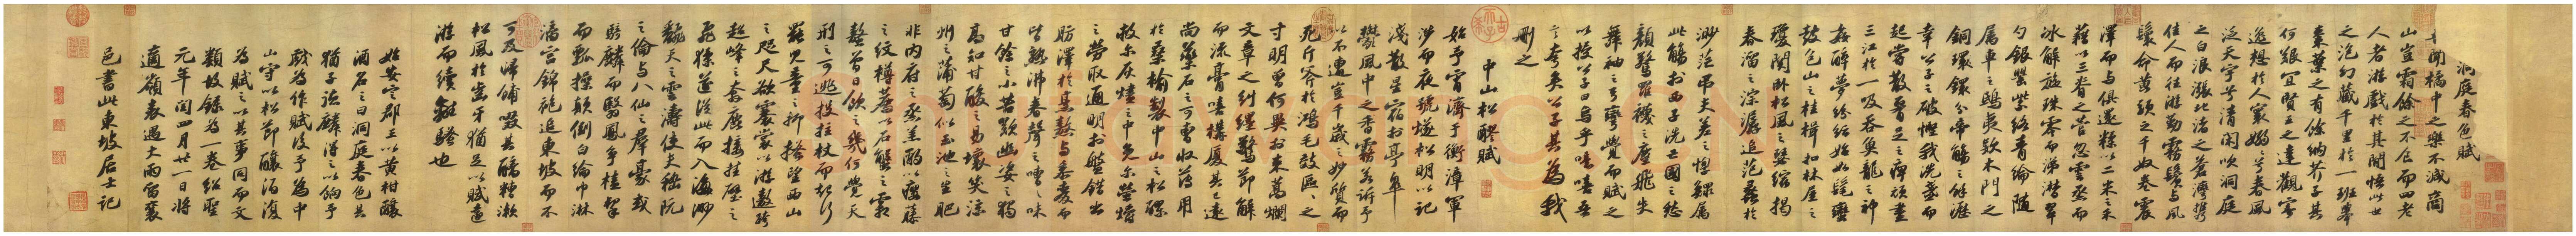 洞庭春色賦
吾聞橘中之樂不減商
山豈霜餘之不食而四老
人者游戲於其間悟此世
之泡幻藏千里於一班舉
棗葉之有餘納芥子其
何艱宜賢王之達觀寄
逸想於人寰嫋々兮春風
泛天宇兮清閑吹洞庭
之白浪漲北渚之蒼灣攜
佳人而往游勤霧鬢與風
鬟命黃頭之千奴卷震
澤而與俱還糅以二米之禾
藉以三脊之菅忽雲烝而
冰解旋珠零而涕潸翠
勺銀罌紫絡青綸隨
屬車之鴟夷款木門之
銅環鍰分帝觴之餘瀝
幸公子之破慳我洗盞而
起嘗散腰足之痺頑盡
三江於一吸吞魚龍之神
姦醉夢紛紜始如髦蠻
鼓包山之桂楫扣林屋之
瓊關臥松風之瑟縮揭
春溜之淙潺追范蠡於
渺茫弔夫差之惸鰥屬
此觴於西子洗亡國之愁
顏驚羅襪之塵飛失
舞袖之弓彎覺而賦之
以授公子曰烏乎噫嘻吾
言夸矣公子其為我
刪之
中山松醪賦
始予宵濟于衡漳軍
涉而夜號燧松明以記
淺散星宿於亭皋
鬱風中之香霧若訴予
以不遭豈千歲之妙質而
死斤斧於鴻毛效區々之
寸明曾何異於束蒿爛
文章之糾纆驚節解
而流膏嘻構廈其已遠
尚藥石之可曹收薄用
於桑榆製中山之松醪
救爾灰燼之中免爾螢爝
之勞取通明於盤錯出
肪澤於烹熬與黍麥而
皆熟沸春聲之嘈々味
甘餘之小苦歎幽姿之獨
高知甘酸之易壞笑涼
州之蒲萄似玉池之生肥
非內府之烝羔酌以癭藤
之紋樽薦以石蟹之霜
螯曾日飲之幾何覺天
刑之可逃投拄杖而起行
罷兒童之抑搔望西山
之咫尺欲褰裳以游遨跨
超峰之奔鹿接挂壁之
飛猱遂從此而入海渺
翻天之雲濤使夫嵇阮
之倫與八仙之群豪或
騎麟而翳鳳爭榼挈
而瓢操顛倒白綸巾淋
漓宮錦袍追東坡而不
可及歸餔歠其醨糟漱
松風於齒牙猶足以賦遠
游而續離騷也
始安定郡王以黃柑釀
酒名之曰洞庭春色其
猶子德麟得之以餉予
戲為作賦後予為中
山守以松節釀酒復
為賦之以其事同而文
類故錄為一卷紹聖
元年閏四月廿一日將
適嶺表遇大雨留襄
邑書此東坡居士記